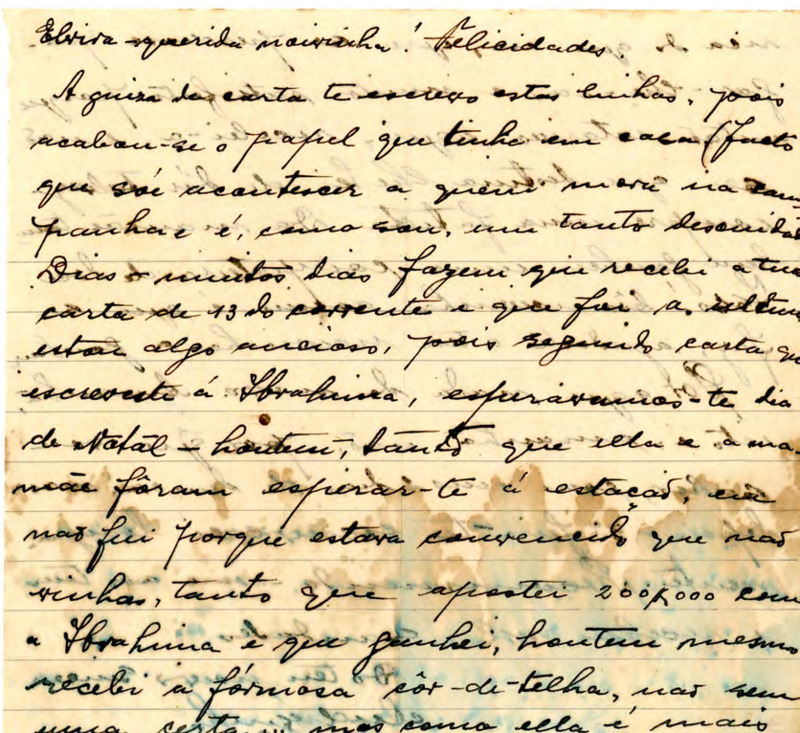 Elvira querida noivinha! Felicidades.
A guiza de carta te escrevo estas linhas, pois
acabou-se o papel que tinha em casa (facto
que sóe acontescer a quem mora na cam
panha e é, como sou, um tanto descuidado
Dias e muitos dias fazem que recebi a tua
carta de 13 do corrente e que foi a ultima
estou algo ancioso, pois segundo carta que
escreveste á Ibrahima, esperavamos-te dia
de Natal - hontem, tanto que ella e a ma-
mãe fôram esperar-te á estação, eu
não fui porque estava convencido que não
vinhas, tanto que apostei 200$000 com
a Ibrahima e que ganhei, hontem mesmo
recebi a fórmosa côr-de-telha, não sem
uma certa mas como ella é mais